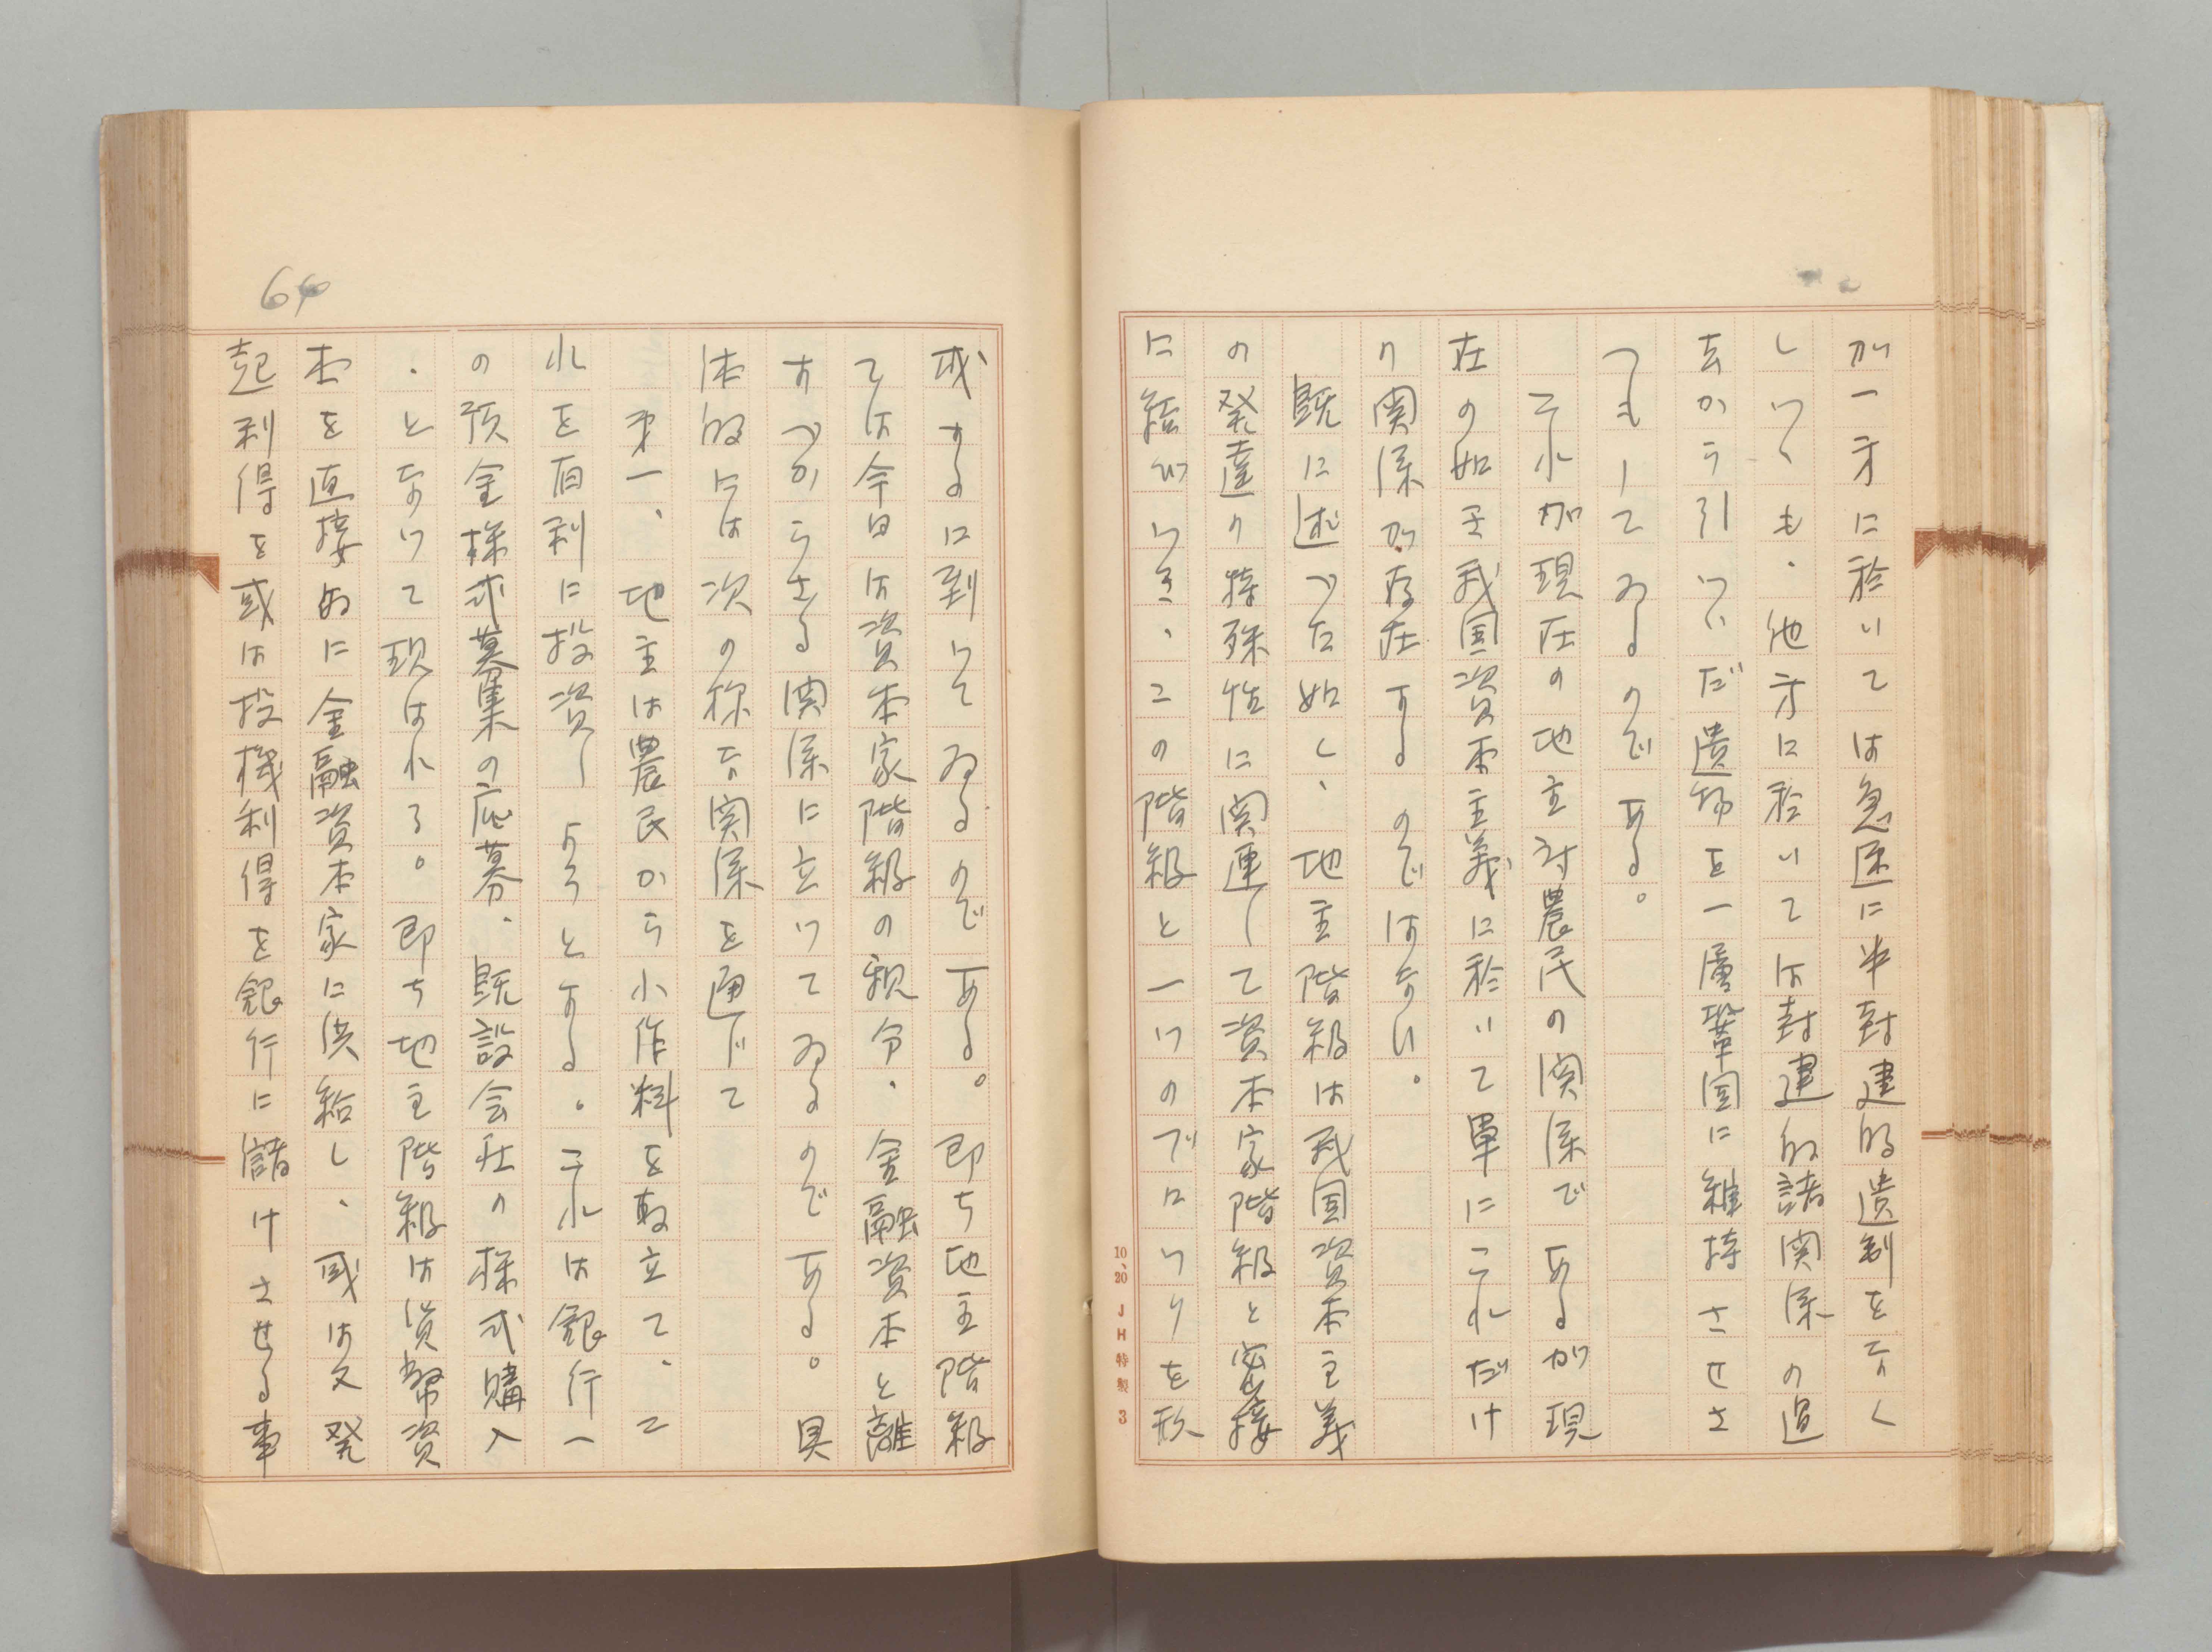 が一方に於いては急速に半封建的遺制をなく
しつゝも、他方に於いては封建的諸関係の過
去から引ついだ遺物を一層鞏固に維持させさ
へもしてゐるのである。
それが現在の地主対農民の関係であるが現
在の如き我国資本主義に於いて単にこれだけ
の関係が存在するのではない。
既に述べた如く、地主階級は我国資本主義
の発達の特殊性に関連して資本家階級と密接
に結びつき、この階級と一つのブロツクを形
10、20 JH特製 3
64
成するに到つてゐるのである。即ち地主階級
ては今日は資本家階級の親令、金融資本と離
すべからざる関係に立つてゐるのである。具
体的には次の様な関係を通じて
第一、地主は農民から小作料を取立て、こ
れを有利に投資しようとする。それは銀行一
の預金株式募集の応募、既設会社の株式購入
、となつて現はれる。即ち地主階級は貨幣資
本を直接的に金融資本家に供給し、或は又発
起利得を或は投機利得を銀行に儲けさせる事